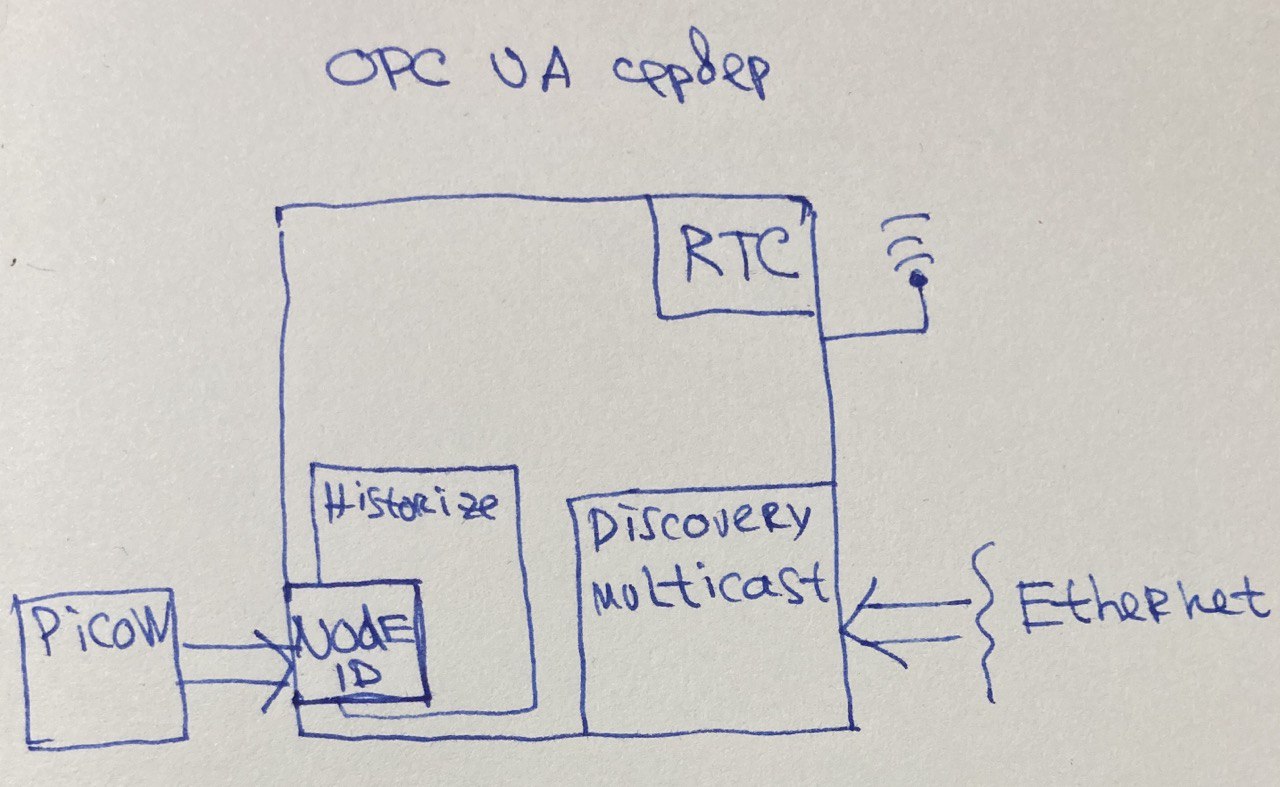 OPC UA сервер
RTC
Historize
Discovery
multicast
PicoW
NODE
ID
Ethernet